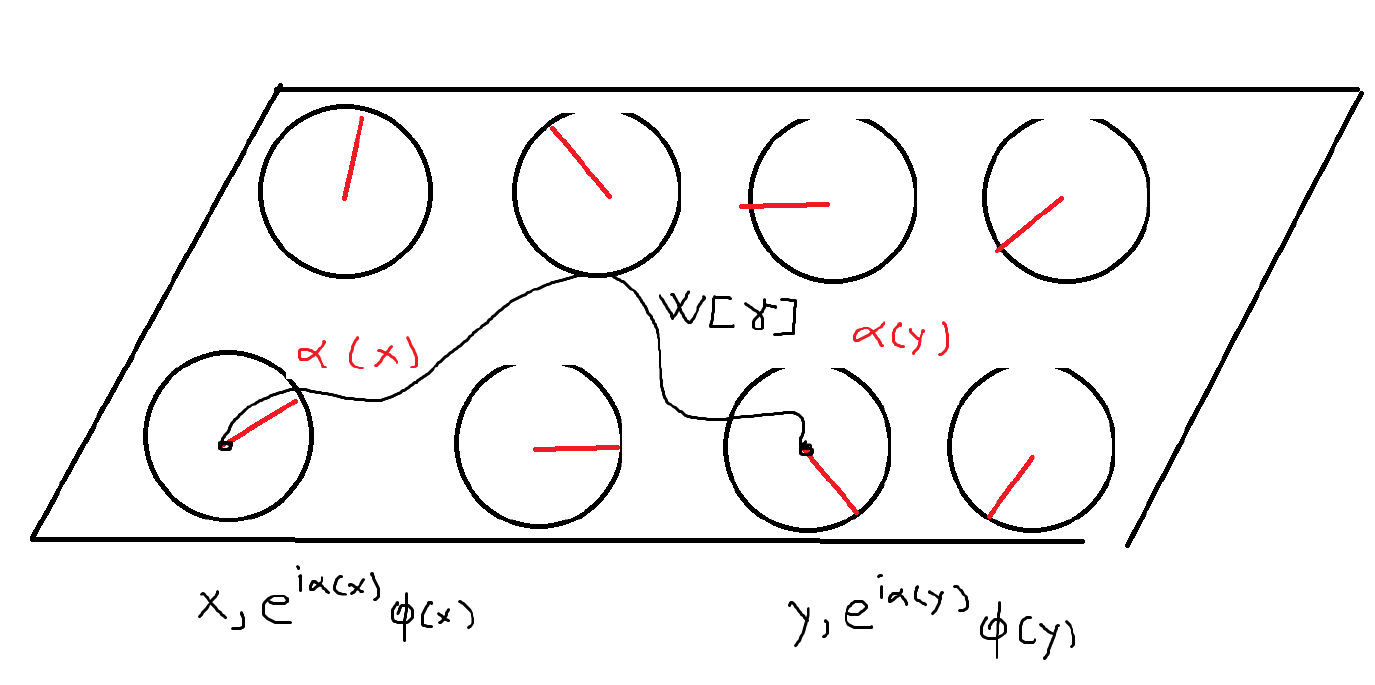 W[γ]
α(x)
α(y)
x, e^{iα(x)} ϕ(x)
y, e^{iα(y)} ϕ(y)